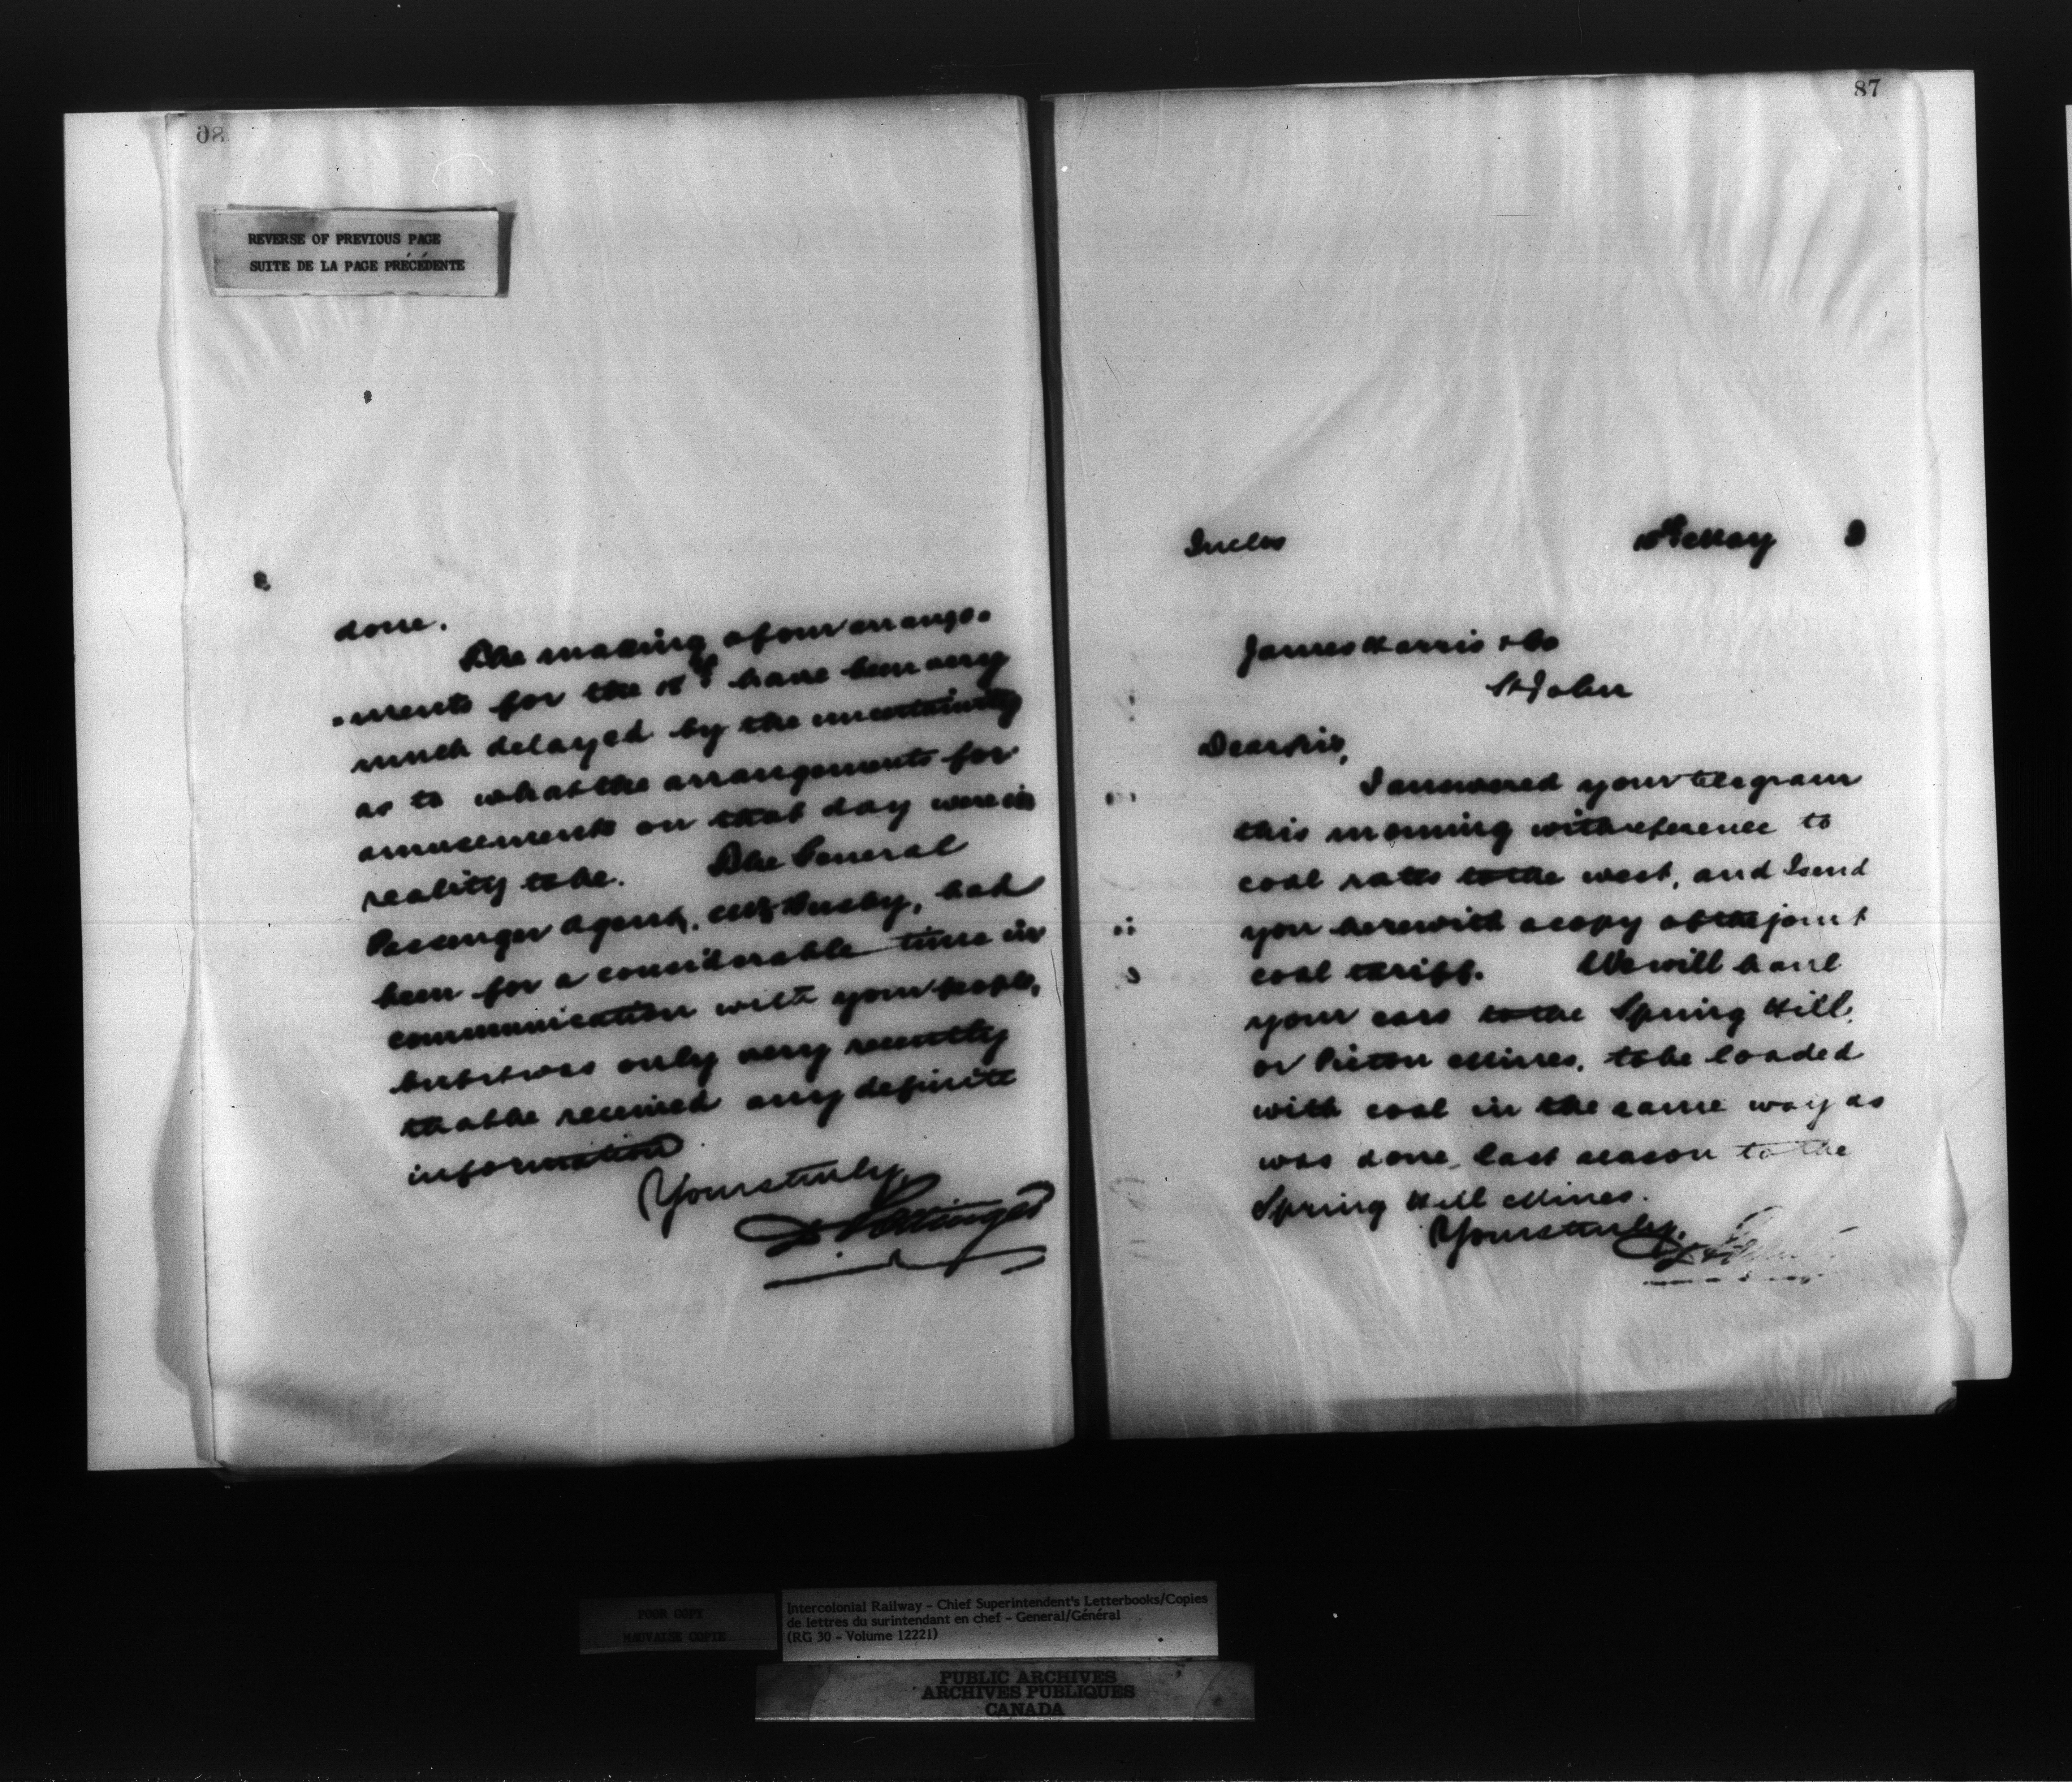 86
REVERSE OF PREVIOUS PAGE
SUITE DE LA PAGE PRÉCÉDENTE
done.
The making of our arrange-
-ments for the 18th have been very
much delayed by the uncertainty
as to what the arrangements for
amusements on that day were in
reality to be. The General
Passenger Agent, Mr Busby, had
been for a considerable time in
communication with your people,
but it was only very recently
that he received any definite
information.
Yours truly,
D Pottinger
87
Inclos
May 3
James Harris & Co
St John
Dear Sir,
I answered your telegram
this morning with reference to
coal rates to the west, and I send
you herewith a copy of the joint
coal tariff. We will haul
your cars to the Spring Hill,
or Pictou Mines, to be loaded
with coal in the same way as
was done, last season to the
Spring Hill Mines.
Yours truly,
D Pottinger
POOR COPY
MAUVAISE COPIE
Intercolonial Railway - Chief Superintendent's Letterbooks/Copies
de lettres du surintendant en chef - General/Général
(RG 30 - Volume 12221)
PUBLIC ARCHIVES
ARCHIVES PUBLIQUES
CANADA